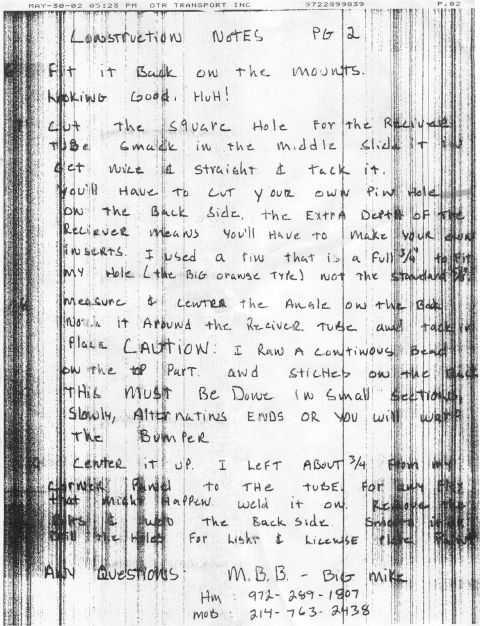 MAY-30-02 05:23 PM OTR TRANSPORT INC 9722899839 P.02
CONSTRUCTION NOTES PG 2
Fit it Back on the mounts.
Looking Good, HuH!
Cut the square Hole For the Reciever
TuBe Smack in the middle Slide it in
Get nice & straight & tack it.
You'll Have To Cut your own Pin Hole
on the Back Side. the Extra Depth of the
Reciever means You'll Have to make your own
inserts. I used a Pin that is a Full 3/4" to fit
my Hole (the Big orange Type) not the standard 5/8".
measure & Center the Angle on the Bar
Notch it Around the Reciver Tube and tack in
Place CAUTION: I Ran A continuous Bead
on the top Part. and Stiches on the Back
THis Must Be Done in Small Sections,
Slowly, Alternating ENDS OR You will warp
the Bumper.
Center it up. I Left About 3/4 From my
Corner Panel to THe tube. For any Flex
that might Happen. weld it on. Remove the
Bolts & weld the Back Side. Smooth it
Drill the Holes For Light & License Plate
Any Questions: M.B.B. - Big Mike
Hm: 972-289-1807
mob: 214-763-2438